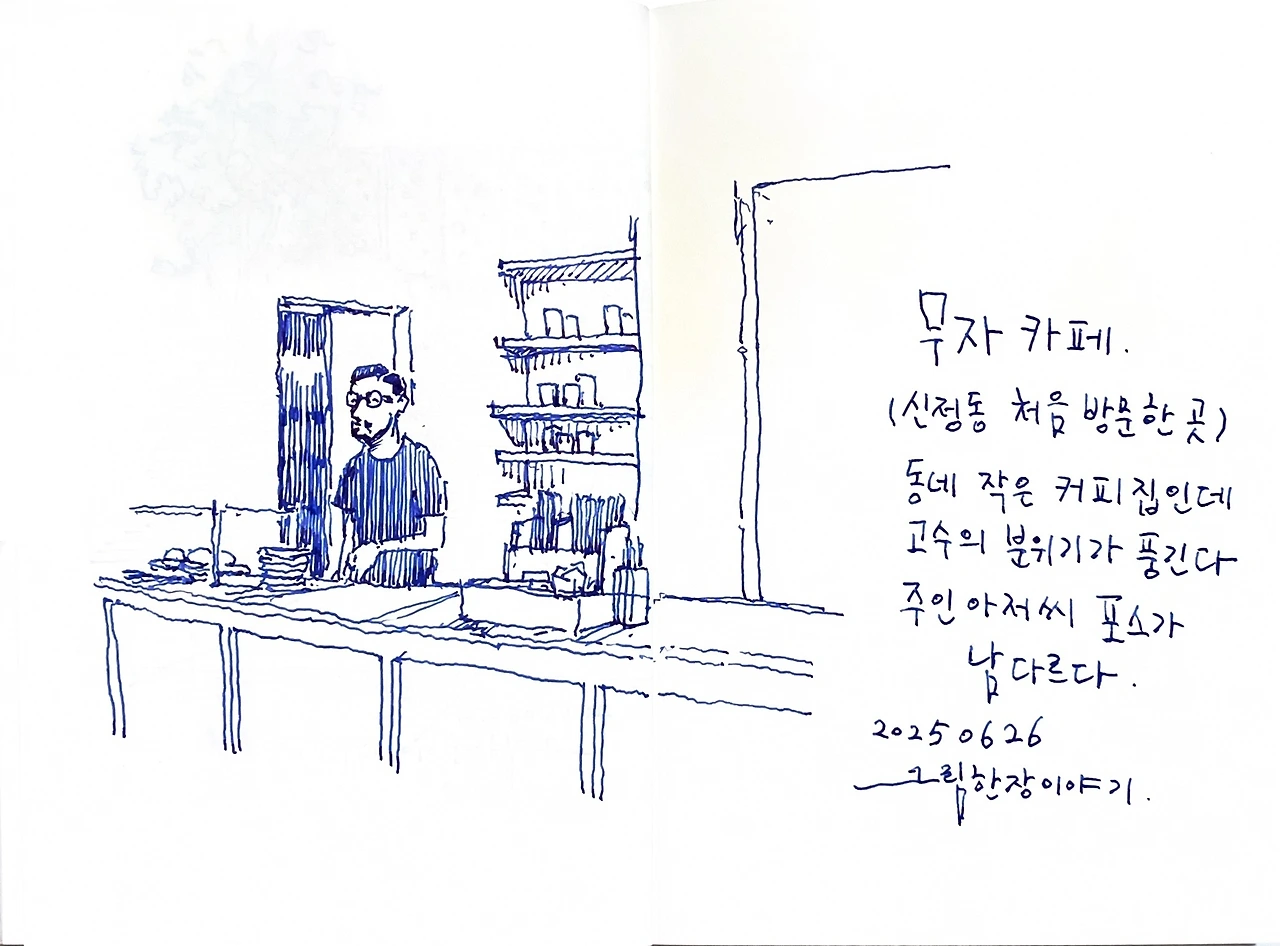 무자 카페.
(신정동 처음 방문한 곳)
동네 작은 커피집인데
고수의 분위기가 풍긴다
주인아저씨 포스가
남다르다.
2025 06 26
그림한장이야기.